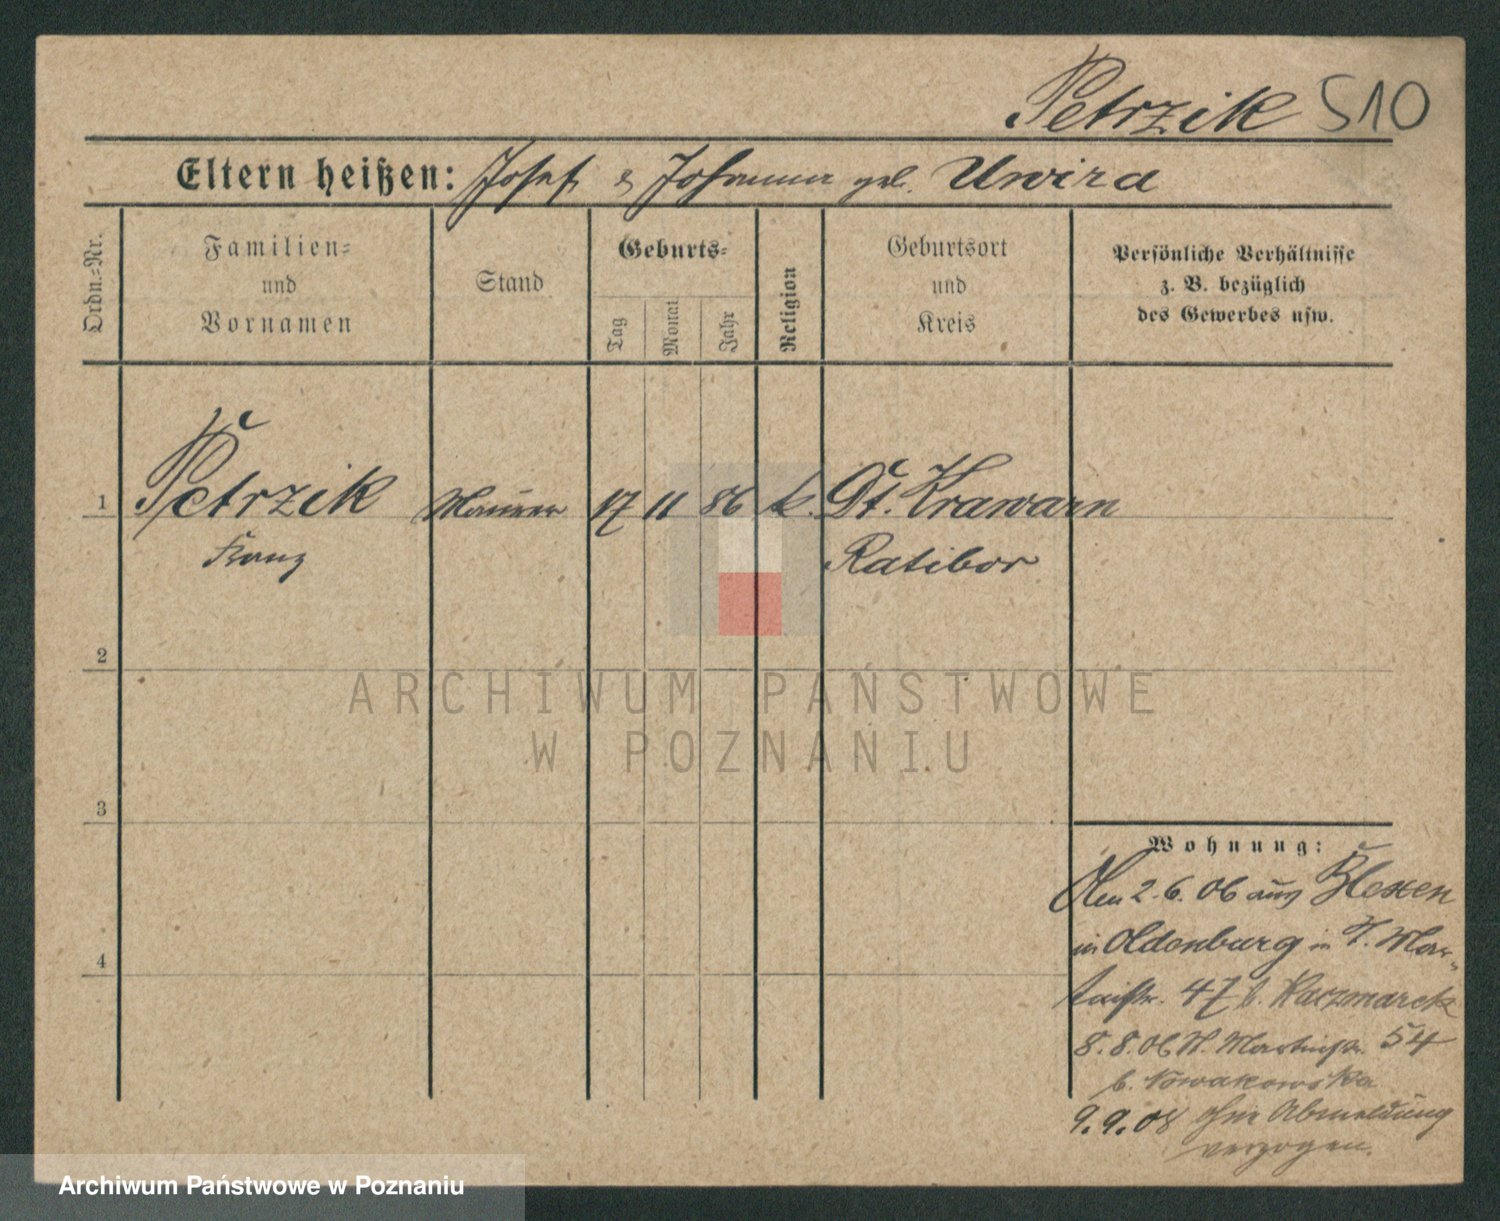 Petrzik 510
Eltern heißen: Josef & Johanna geb. Uwira
Ordn.=Nr.
Familien=
und
Vornamen
Stand
Geburts=
Tag
Monat
Jahr
Religion
Geburtsort
und
Kreis
Persönliche Verhältnisse
z. B. bezüglich
des Gewerbes usw.
1 Petrzik Maurer 17 11 86 k. Dt. Krawarn
Franz Ratibor
2
3
4
Wohnung:
Den 2.6.06 aus Blexen
in Oldenburg in St. Mar-
tinstr. 47 b. Kaczmarek
8.8.06 St. Martinstr. 54
b. Nowakowska
9.9.08 ohne Abmeldung
verzogen.
ARCHIWUM PAŃSTWOWE
W POZNANIU
Archiwum Państwowe w Poznaniu